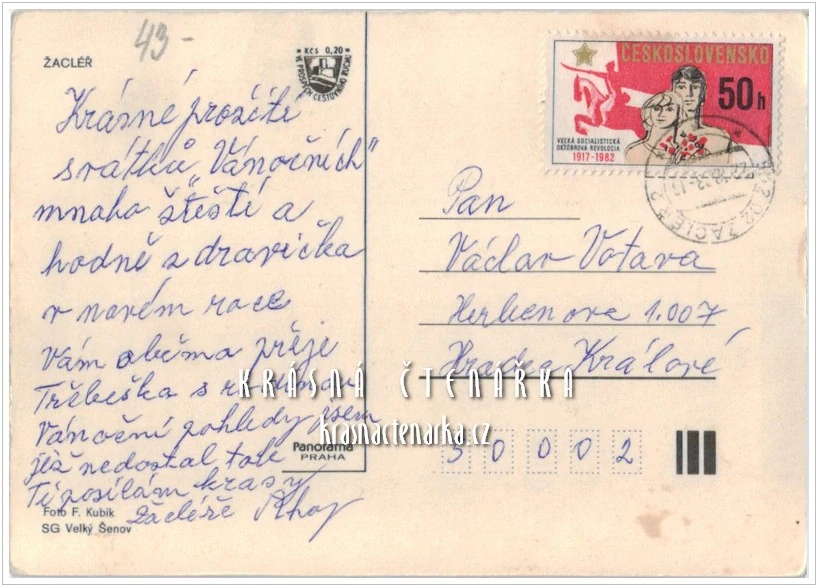 43-
ŽACLÉŘ
Kčs 0,20
VE PROSPĚCH CESTOVNÍHO RUCHU
ČESKOSLOVENSKO
50h
VELKÁ SOCIALISTICKÁ
ŘÍJNOVÁ REVOLUCIA
1917-1982
542 02 ŽACLÉŘ 2
Krásné prožití
svátků „Vánočních"
mnoho štěstí a
hodně zdravíčka
v novém roce
Vám oběma přeje
Třebeška s rodinou
Vánoční pohledy jsem
již nedostal tak
Ti posílám krasy
Žacléře Ahoj
Pan
Václav Votava
Herbenova 1.007
Hradec Králové
50002
KRÁSNÁ ČTENÁŘKA
krasnactenarka.cz
Panorama
PRAHA
Foto F. Kubík
SG Velký Šenov